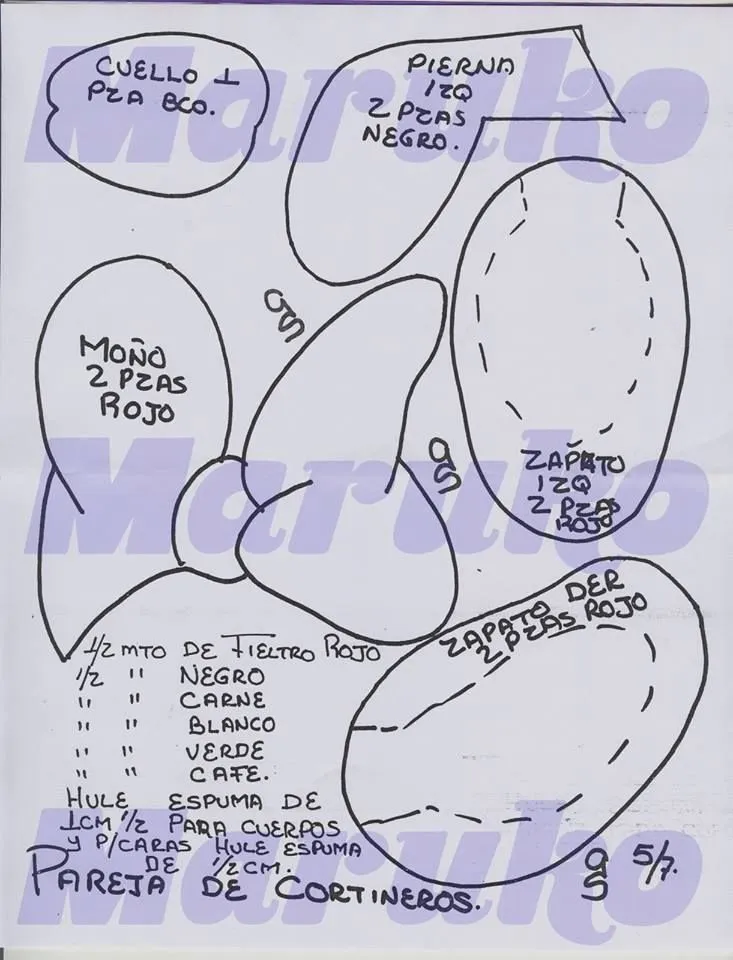 CUELLO 1
PZA BCO.
PIERNA
IZQ
2 PZAS
NEGRO.
MOÑO
2 PZAS
ROJO
ZAPATO
IZQ
2 PZAS
ROJO
ZAPATO DER
2 PZAS ROJO
1/2 MTO DE FIELTRO ROJO
1/2 " NEGRO
" " CARNE
" " BLANCO
" " VERDE
" " CAFE.
HULE ESPUMA DE
1CM 1/2 PARA CUERPOS
Y P/CARAS HULE ESPUMA
DE 1/2 CM.
PAREJA DE CORTINEROS.
5/7.
Maruko
Maruko
Maruko